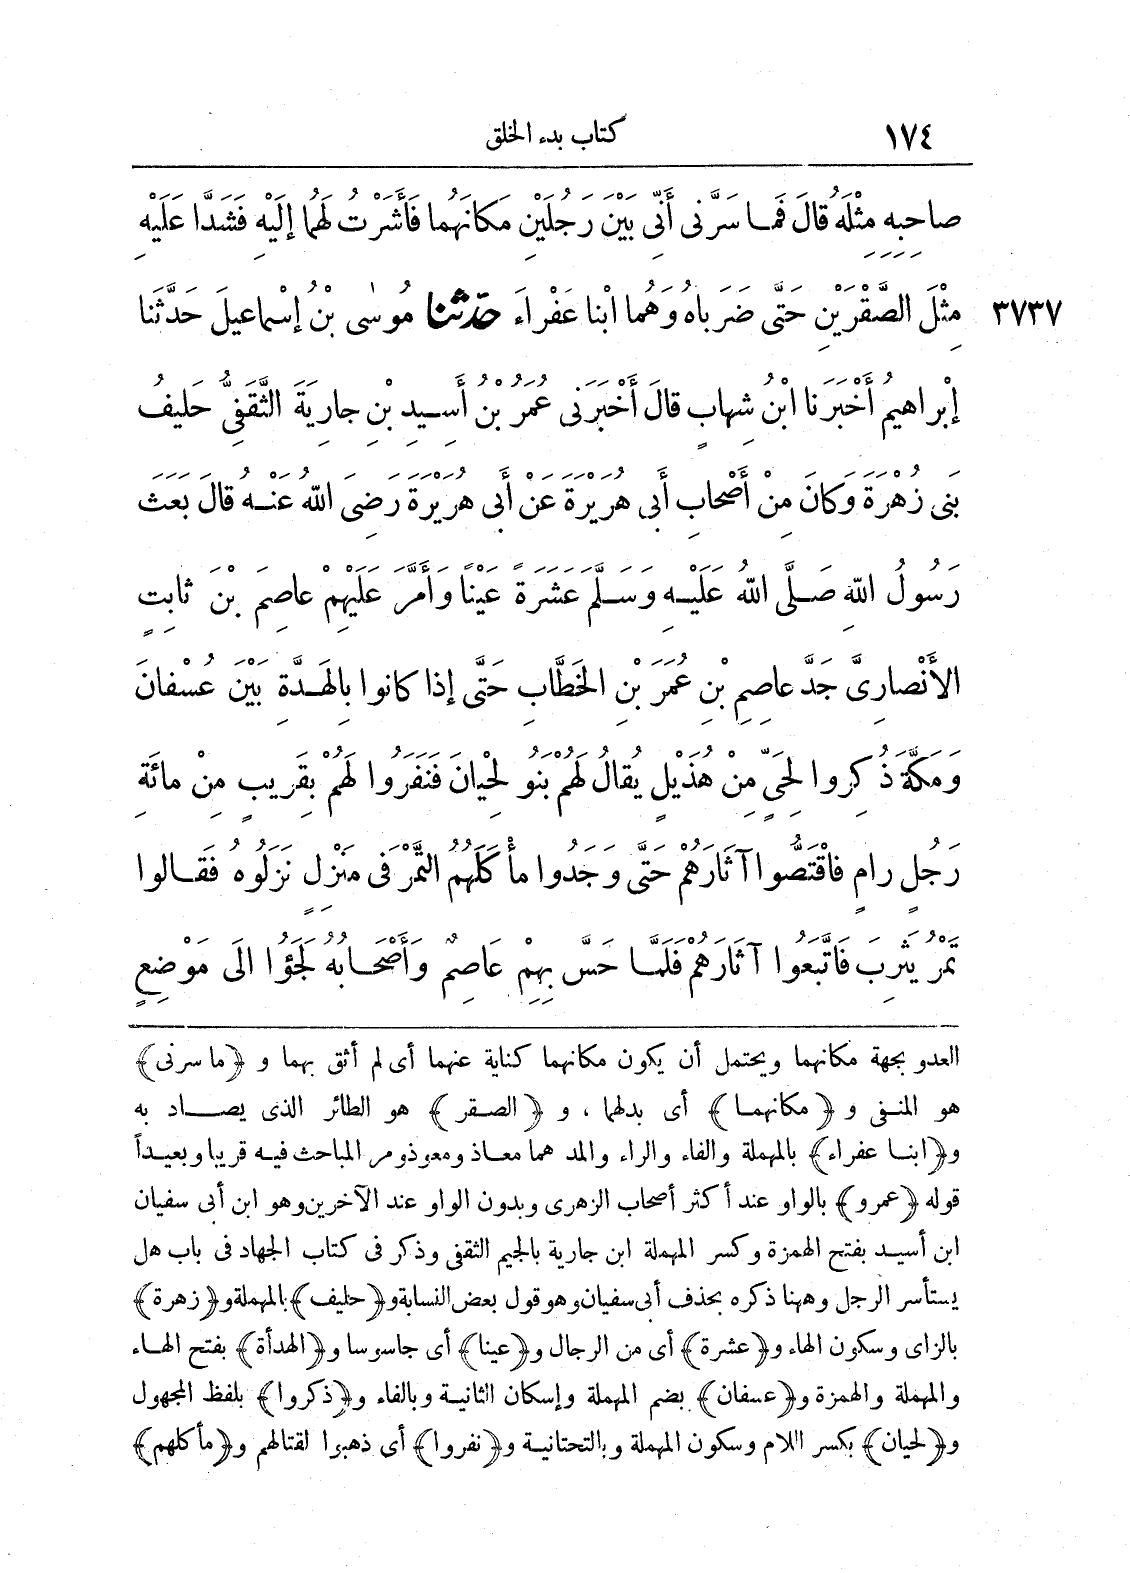 ١٧٤ كتاب بدء الخلق
صاحِبِهِ مِثْلَهُ قالَ فَما سَرَّنى أَنِّى بَيْنَ رَجُلَيْنِ مَكانَهُما فَأَشَرْتُ لَهُما إِلَيْهِ فَشَدَّا عَلَيْهِ
٣٧٣٧ مِثْلَ الصَّقْرَيْنِ حَتَّى ضَرَباهُ وَهُما ابْنا عَفْراءَ حدّثنا مُوسٰى بْنُ إِسْماعِيلَ حَدَّثَنا
إِبْراهِيمُ أَخْبَرَنا ابْنُ شِهابٍ قالَ أَخْبَرَنى عُمَرُ بْنُ أَسِيدِ بْنِ جارِيَةَ الثَّقَفِىُّ حَلِيفُ
بَنى زُهْرَةَ وَكانَ مِنْ أَصْحابِ أَبى هُرَيْرَةَ عَنْ أَبى هُرَيْرَةَ رَضِىَ اللهُ عَنْهُ قالَ بَعَثَ
رَسُولُ اللهِ صَلَّى اللهُ عَلَيْهِ وَسَلَّمَ عَشَرَةً عَيْنًا وَأَمَّرَ عَلَيْهِمْ عاصِمَ بْنَ ثابِتٍ
الأَنْصارِىَّ جَدَّ عاصِمِ بْنِ عُمَرَ بْنِ الخَطَّابِ حَتَّى إِذا كانوا بِالهَدَّةِ بَيْنَ عُسْفانَ
وَمَكَّةَ ذُكِروا لِحَىٍّ مِنْ هُذَيْلٍ يُقالُ لَهُمْ بَنُو لِحْيانَ فَنَفَرُوا لَهُمْ بِقَرِيبٍ مِنْ مائَةِ
رَجُلٍ رامٍ فاقْتَصُّوا آثارَهُمْ حَتَّى وَجَدُوا مأْكَلَهُمُ التَّمْرَ فى مَنْزِلٍ نَزَلُوهُ فَقالوا
تَمْرُ يَثْرِبَ فَاتَّبَعُوا آثَارَهُمْ فَلَمَّا حَسَّ بِهِمْ عَاصِمٌ وَأَصْحَابُهُ لَجَؤُا الَى مَوْضِعٍ
العدو بجهة مكانهما ويحتمل أن يكون مكانهما كناية عنهما أى لم أثق بهما و ﴿ما سرنى﴾
هو المنفى و ﴿مكانهما﴾ أى بدلهما ، و ﴿الصقر﴾ هو الطائر الذى يصاد به
و﴿ابنا عفراء﴾ بالمهملة والفاء والراء والمد هما معاذ ومعوذ ومر المباحث فيه قريبا وبعيداً
قوله ﴿عمرو﴾ بالواو عند أكثر أصحاب الزهرى وبدون الواو عند الآخرين وهو ابن أبى سفيان
ابن أسيد بفتح الهمزة وكسر المهملة ابن جارية بالجيم الثقفى وذكر فى كتاب الجهاد فى باب هل
يستأسر الرجل وههنا ذكره بحذف أبى سفيان وهو قول بعض النسابة و﴿حليف﴾ بالمهملة و﴿زهرة﴾
بالزاى وسكون الهاء و﴿عشرة﴾ أى من الرجال و﴿عينا﴾ أى جاسوسا و﴿الهدأة﴾ بفتح الهاء
والمهملة والهمزة و﴿عسفان﴾ بضم المهملة وإسكان الثانية وبالفاء و﴿ذكروا﴾ بلفظ المجهول
و﴿لحيان﴾ بكسر اللام وسكون المهملة وبالتحتانية و﴿نفروا﴾ أى ذهبوا لقتالهم و﴿مأكلهم﴾